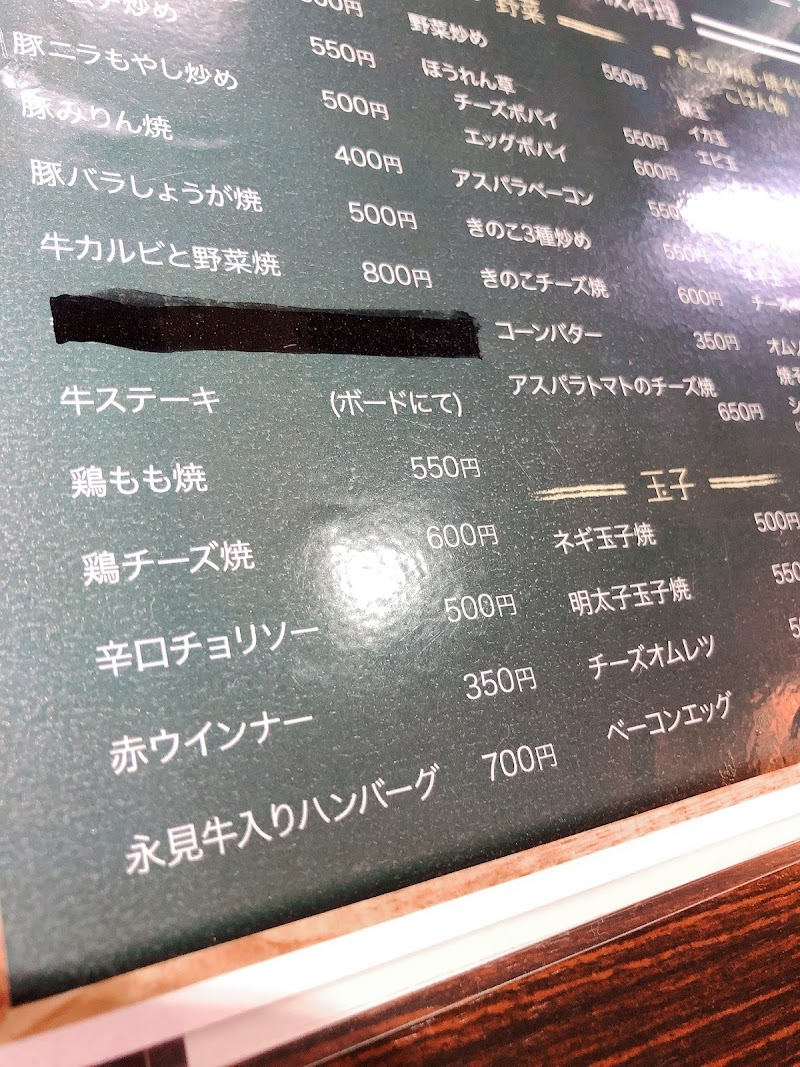 炒め 550円
豚ニラもやし炒め 500円
豚みりん焼 400円
豚バラしょうが焼 500円
牛カルビと野菜焼 800円
牛ステーキ (ボードにて)
鶏もも焼 550円
鶏チーズ焼 600円
辛口チョリソー 500円
赤ウインナー 350円
永見牛入りハンバーグ 700円
野菜
野菜炒め 550円
ほうれん草
チーズポパイ 550円
エッグポパイ 600円
アスパラベーコン 550
きのこ3種炒め 550円
きのこチーズ焼 600円
コーンバター 350円
アスパラトマトのチーズ焼 650円
玉子
ネギ玉子焼 500円
明太子玉子焼 550
チーズオムレツ
ベーコンエッグ
料理
ごはん物
イカ玉
エビ玉